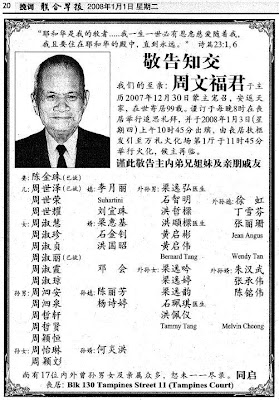 20 晚讯 联合早报 2008年1月1日 星期二
"耶和华是我的牧者……我一生一世必有恩惠慈爱随着我,
我且要住在耶和华的殿中,直到永远。" 诗篇23:1,6
敬告知交
我们的至亲:周文福君于主
历2007年12月30日蒙主宠召,安返天
家,在世寄居99载。谨订于每晚8时在丧
居举行追思礼拜,并于2008年1月3日(星
期四)上午10时45分出殡,由丧居扶柩
发引至万礼火化场第1厅于11时45分
举行火化,候主再临。
谨此敬告主内弟兄姐妹及亲朋戚友
妻:陈金珠(已故)
儿:周世泽(已故) 媳:李月丽 外孙男:梁逸弘医生 外孙媳:徐虹
周世荣 Suhartini 石智明 丁雪芬
周世耀 刘宝珠 洪哲樑 张丽珊
女:周淑慧 婿:梁惠基 洪顺樑 Jean Angus
周淑珍 石金钊 黄启彬
周淑贞 洪国昭 黄启伟
周淑 Bernard Tang Wendy Tan
周淑霞 邓会 外孙女:梁逸吟 外孙婿:朱汉武
周淑琼 梁逸婷 张承伟
孙男:周泗安 孙媳:陈丽芳 梁逸韵 陈铭伟
周泗泉 杨诗婷 石珮琪医生
周哲轩 洪佩仪
周哲贤 Tammy Tang Melvin Choong
周颖恒
孙女:周怡琳 孙婿:何炎洪
周颖
尚有17位内外曾孙男女及亲属众多,恕未一一尽录。 同启
丧居:Blk 130 Tampines Street 11 (Tampines Court)